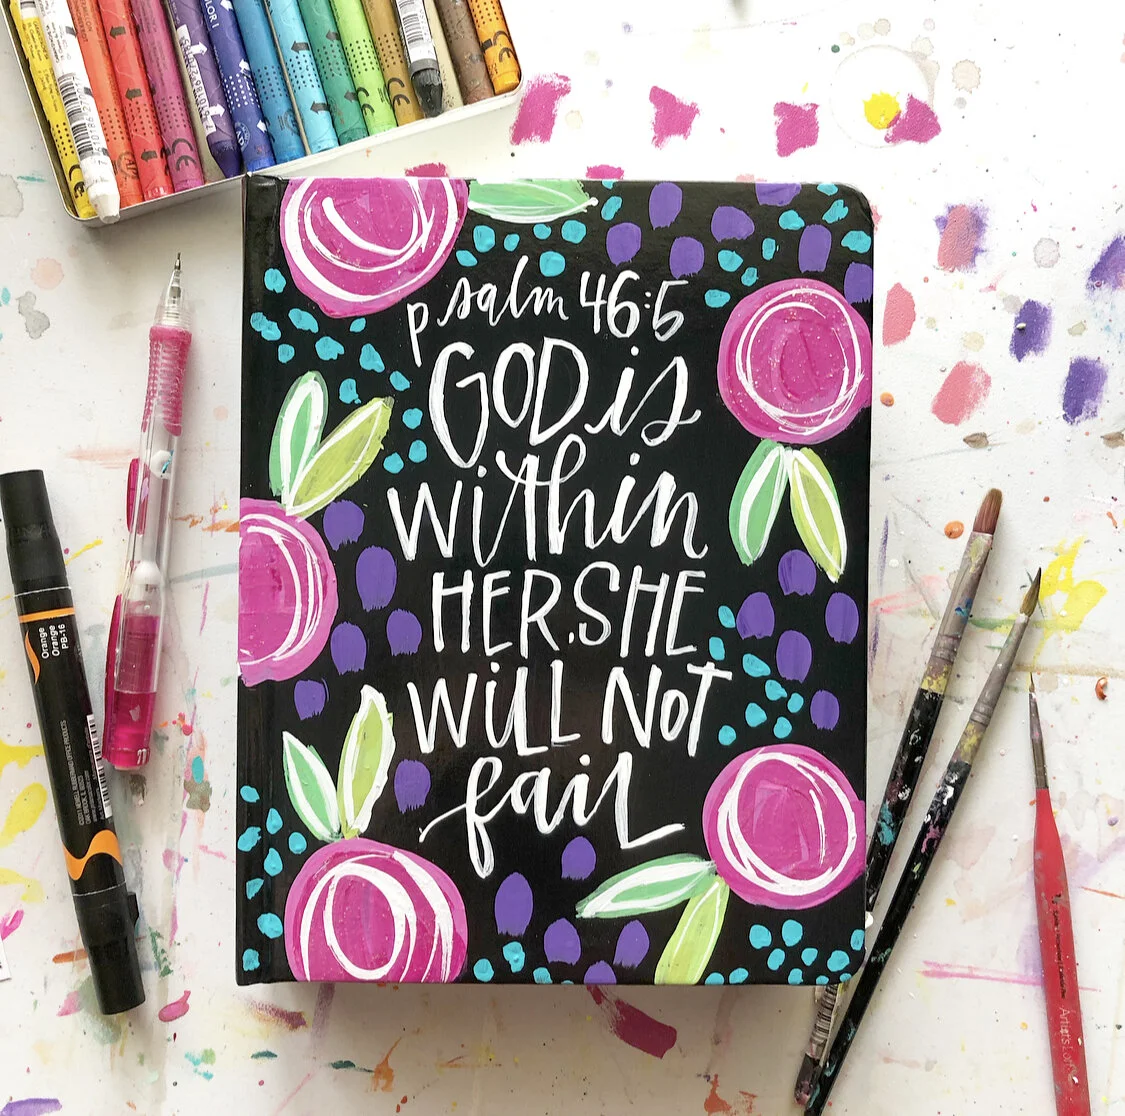 psalm 46:5
GOD is
within
HER. SHE
WiLL NOT
faiL
Orange
Orange
PB-16